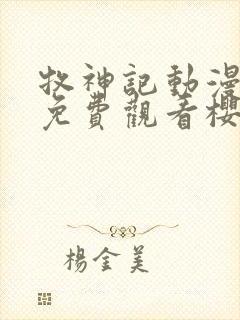 牧神記動漫
免費觀看櫻
楊金美